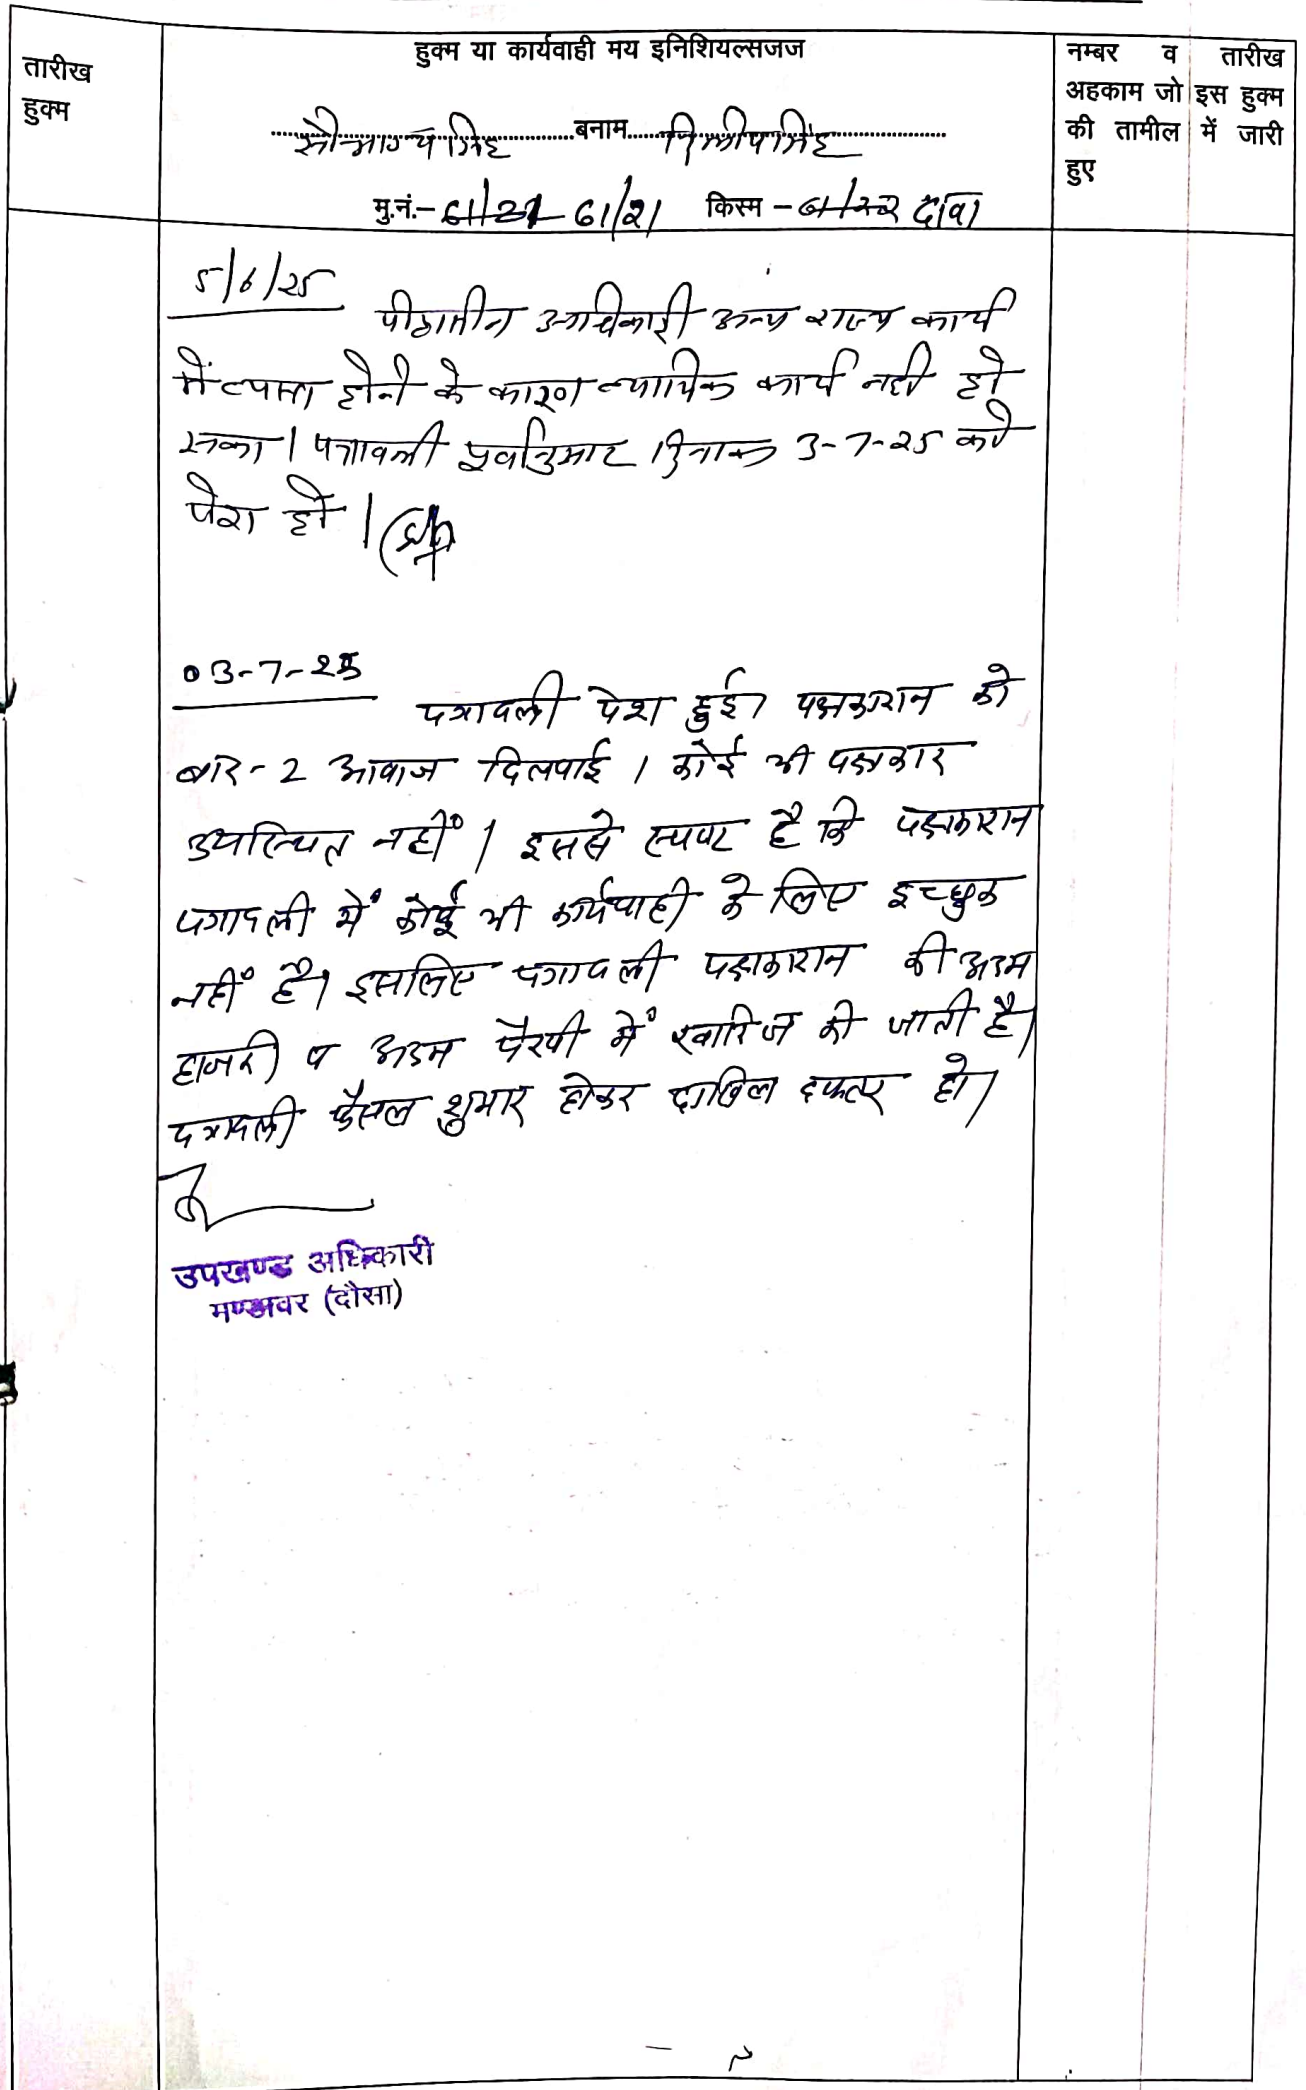 तारीख
हुक्म
हुक्म या कार्यवाही मय इनिशियल्सजज
सौभाग्य सिंह बनाम दिलीप सिंह
मु.नं.- 61/21 61/21 किस्म - दावा
नम्बर व तारीख
अहकाम जो इस हुक्म
की तामील में जारी
हुए
5/6/25
पीठासीन अधिकारी अन्य राज्य कार्य
में व्यस्त होने के कारण न्यायिक कार्य नहीं हो
सका। पत्रावली पूर्वानुसार दिनांक 3-7-25 को
पेश हो।
03-7-25
पत्रावली पेश हुई। पक्षकारान को
बार-2 आवाज दिलवाई। कोई भी पक्षकार
उपस्थित नहीं। इससे स्पष्ट है कि पक्षकारान
पत्रावली में कोई भी कार्यवाही के लिए इच्छुक
नहीं है। इसलिए पत्रावली पक्षकारान की अदम
हाजरी व अदम पैरवी में खारिज की जाती है।
पत्रावली फैसल शुमार होकर दाखिल दफ्तर हो।
उपखण्ड अधिकारी
मण्डावर (दौसा)